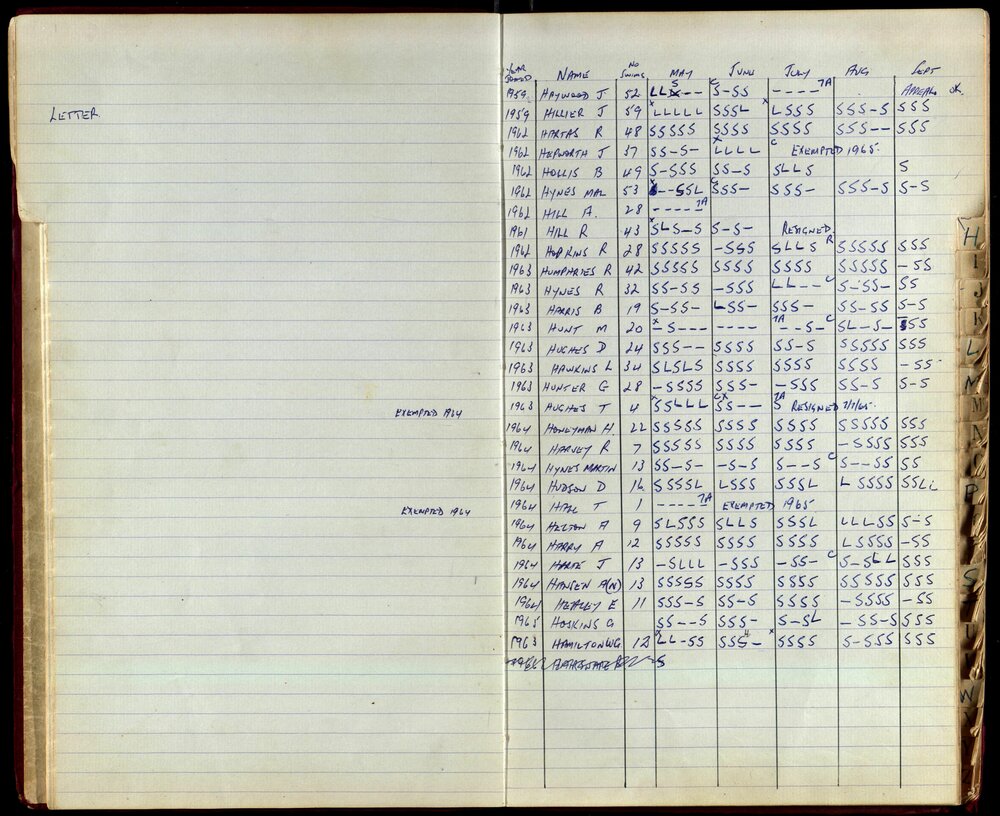 LETTER.
EXEMPTED 1964
EXEMPTED 1964
YEAR JOINED NAME NO SWIMS MAY JUNE JULY AUG SEPT
1959 HAYWOOD J. 52 S-SS ---- 7A APPEAL OK.
1959 HILLIER J 59 LLLLL SSSL LSSS SSS-S SSS
1962 HARTAS R 48 SSSSS SSSS SSSS SSS-- SSS
1962 HEPWORTH J 37 SS-S- LLLL EXEMPTED 1965.
1962 HOLLIS B 49 S-SSS SS-S SLLS S
1962 HYNES MAL 53 --SSL SSS- SSS- SSS-S S-S
1962 HILL A. 28 ----- 7A
1961 HILL R 43 SLS-S S-S- RESIGNED
1962 HOPKINS R 28 SSSSS -SSS SLLS R SSSSS SSS
1963 HUMPHRIES R 42 SSSSS SSSS SSSS SSSSS -SS
1963 HYNES R 32 SS-SS -SSS LL-- C S-SS- SS
1963 HARRIS B 19 S-SS- LSS- SSS- SS-SS S-S
1963 HUNT M 20 -S--- ---- 7A --S- C SL-S- SSS
1963 HUGHES D 24 SSS-- SSSS SS-S SSSSS SSS
1963 HAWKINS L 34 SLSLS SSSS SSSS SSSS -SS
1963 HUNTER G 28 -SSSS SSS- -SSS SS-S S-S
1963 HUGHES T 4 SSLLL SS-- 7A S RESIGNED 7/7/65.
1964 HONEYMAN H. 22 SSSSS SSSS SSSS SSSSS SSS
1964 HARVEY R 7 SSSSS SSSS SSSS -SSSS SSS
1964 HYNES MARTIN 13 SS-S- -S-S S--S C S--SS SS
1964 HUDSON D 16 SSSSL LSSS SSSL LSSSS SSL
1964 HALL T 1 ----- 7A EXEMPTED 1965.
1964 HELTON A 9 SLSSS SLLS SSSL LLLSS S-S
1964 HARRY A 12 SSSSS SSSS SSSS LSSSS -SS
1964 HARTE J 13 -SLLL -SSS -SS- C S-SLL SSS
1964 HANSEN A(N) 13 SSSSS SSSS SSSS SSSSS SSS
1964 HEALEY E 11 SSS-S SS-S SSSS -SSSS -SS
1965 HOSKINS G SS--S SSSS S-SL -SS-S SSS
1963 HAMILTON WG 12 LL-SS SSS- SSSS S-SSS SSS
S
H
I
J
K
L
M
M
N
O
P
S
T
U
W